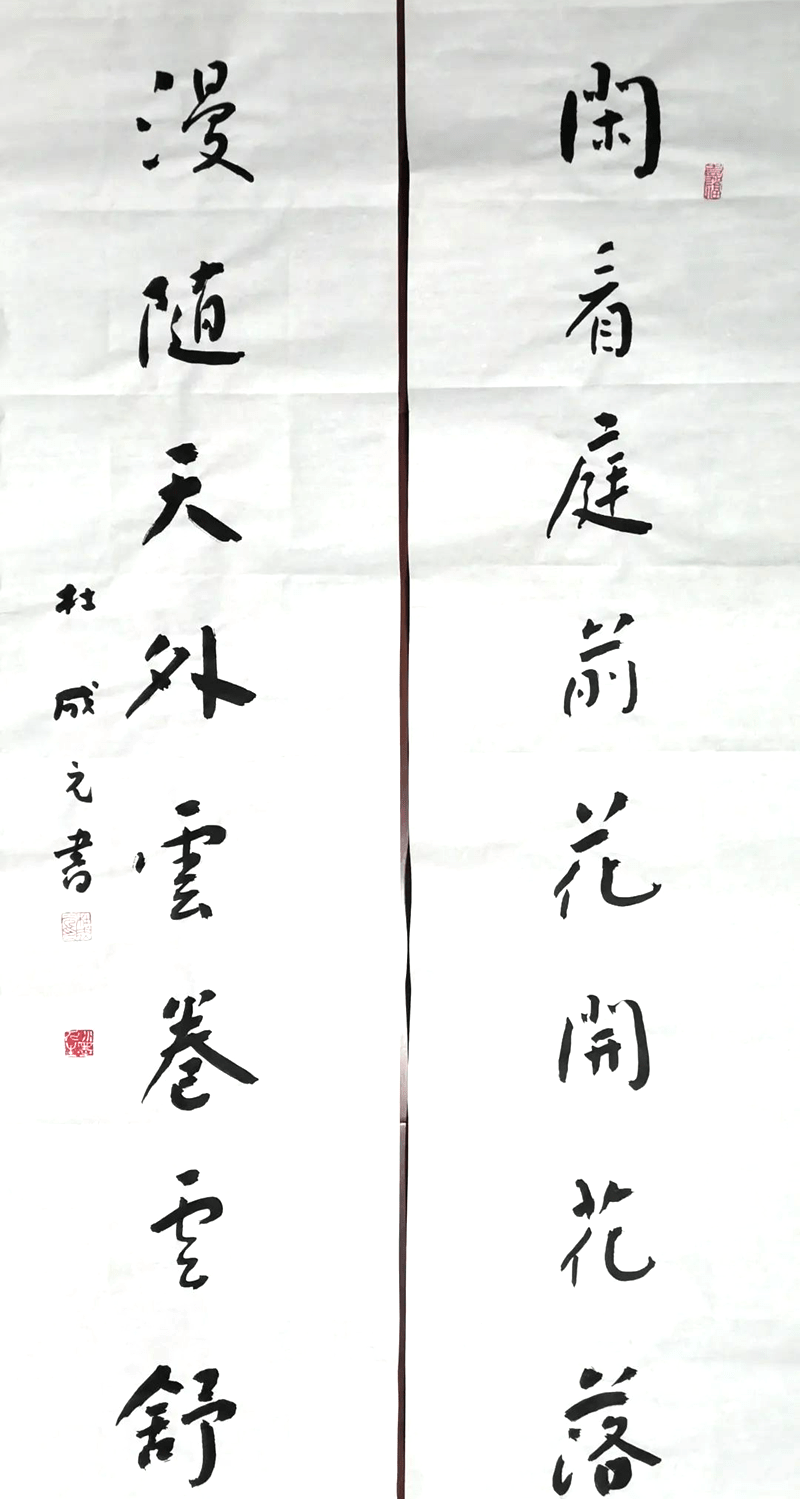 閑看庭前花開花落
漫隨天外雲卷雲舒
杜成元書